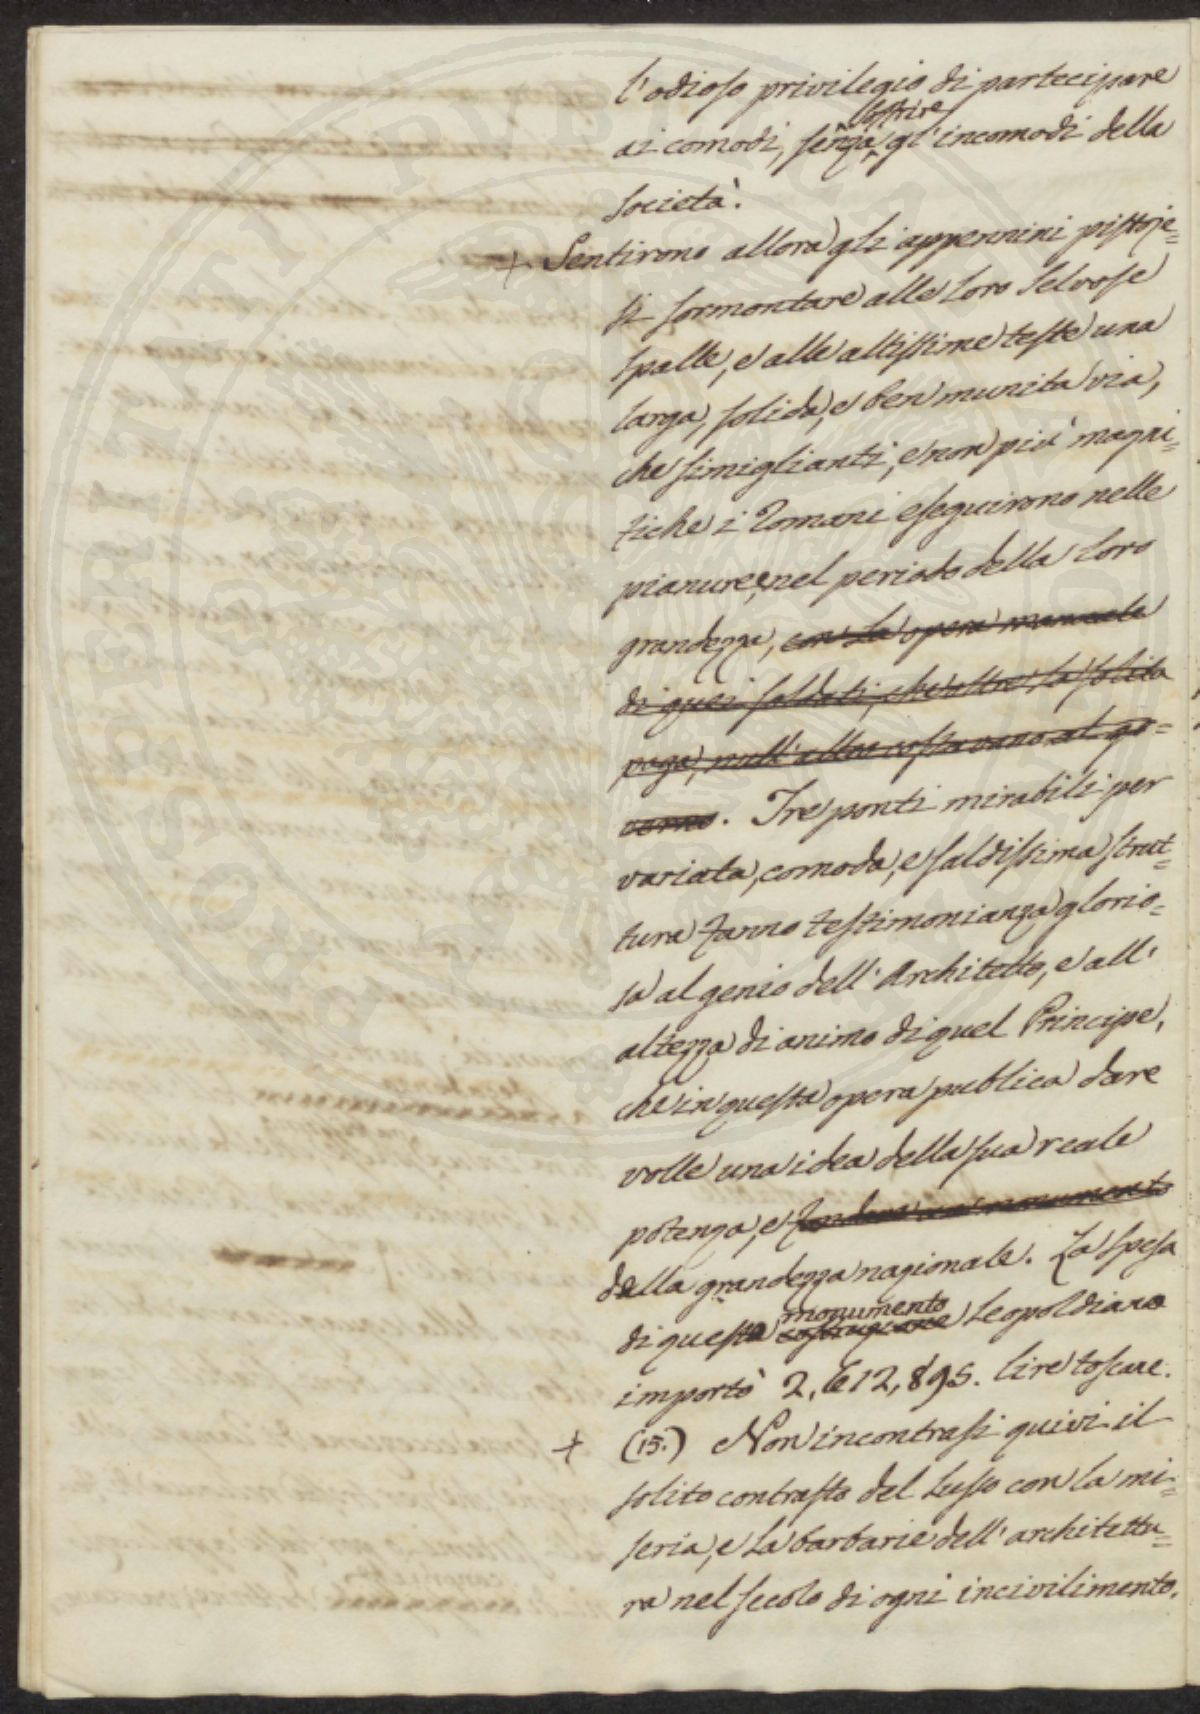 l'odioso privilegio di partecipare
soffrire
ai comodi, senza gl'incomodi della
società.
+ Sentirono allora gli appennini pistoje=
si sormontare alle loro selvose
spalle, e alle altissime teste una
larga, solida, e ben munita via,
che simiglianti, e non più magni=
fiche i Romani eseguirono nelle
pianure, nel periodo della loro
grandezza, con la opera manuale
di quei soldati, che oltre la solita
paga, null'altro costavano al go=
verno. Tre ponti mirabili per
variata, comoda, e saldissima strut=
tura fanno testimonianza glorio=
sa al genio dell'Architetto, e all'
altezza di animo di quel Principe,
che in questa opera publica dare
volle una idea della sua reale
potenza, e fondare un monumento
della grandezza nazionale. La spesa
monumento
di questo costruzione Leopoldiano
importò 2,612,895. lire toscane.
+ (15.) Non incontrasi quivi il
solito contrasto del lusso con la mi=
seria, e la barbarie dell'architettu=
ra nel secolo di ogni incivilimento.